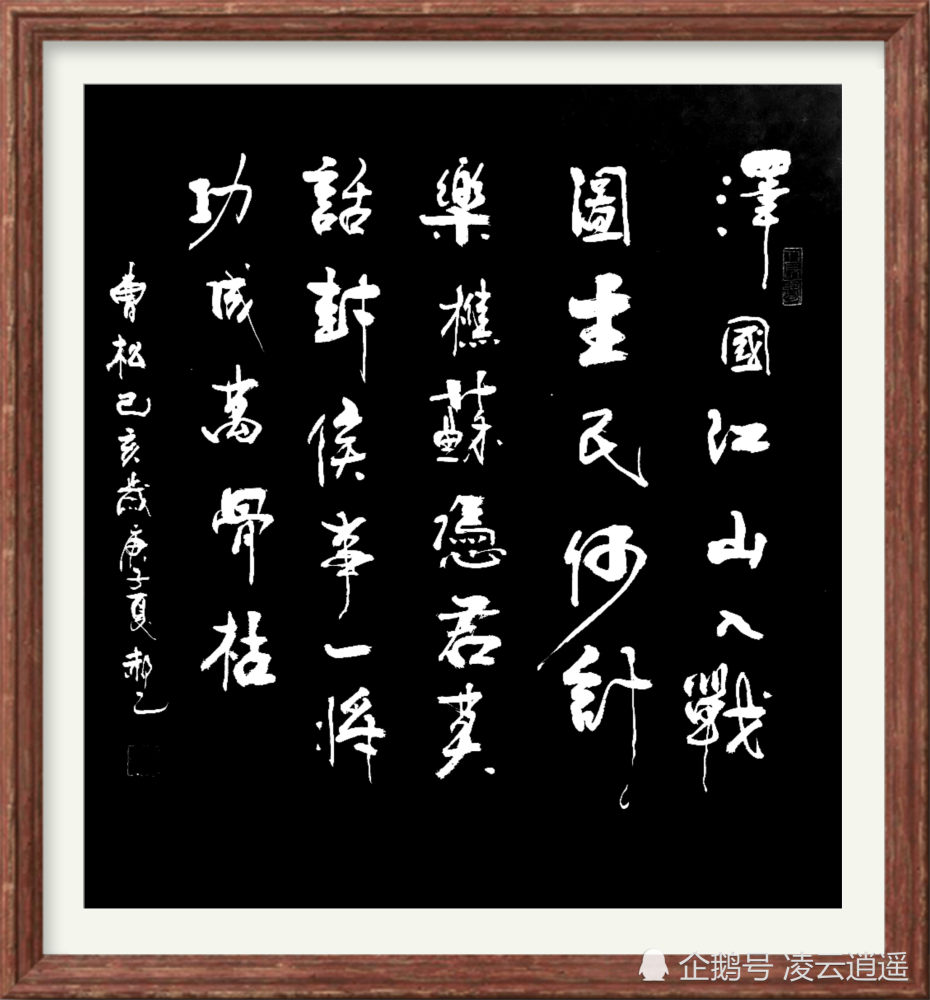 澤國江山入戰
圖生民何計
樂樵蘇憑君莫
話封侯事一將
功成萬骨枯
曹松己亥歲庚子夏郝
企鹅号 凌云逍遥